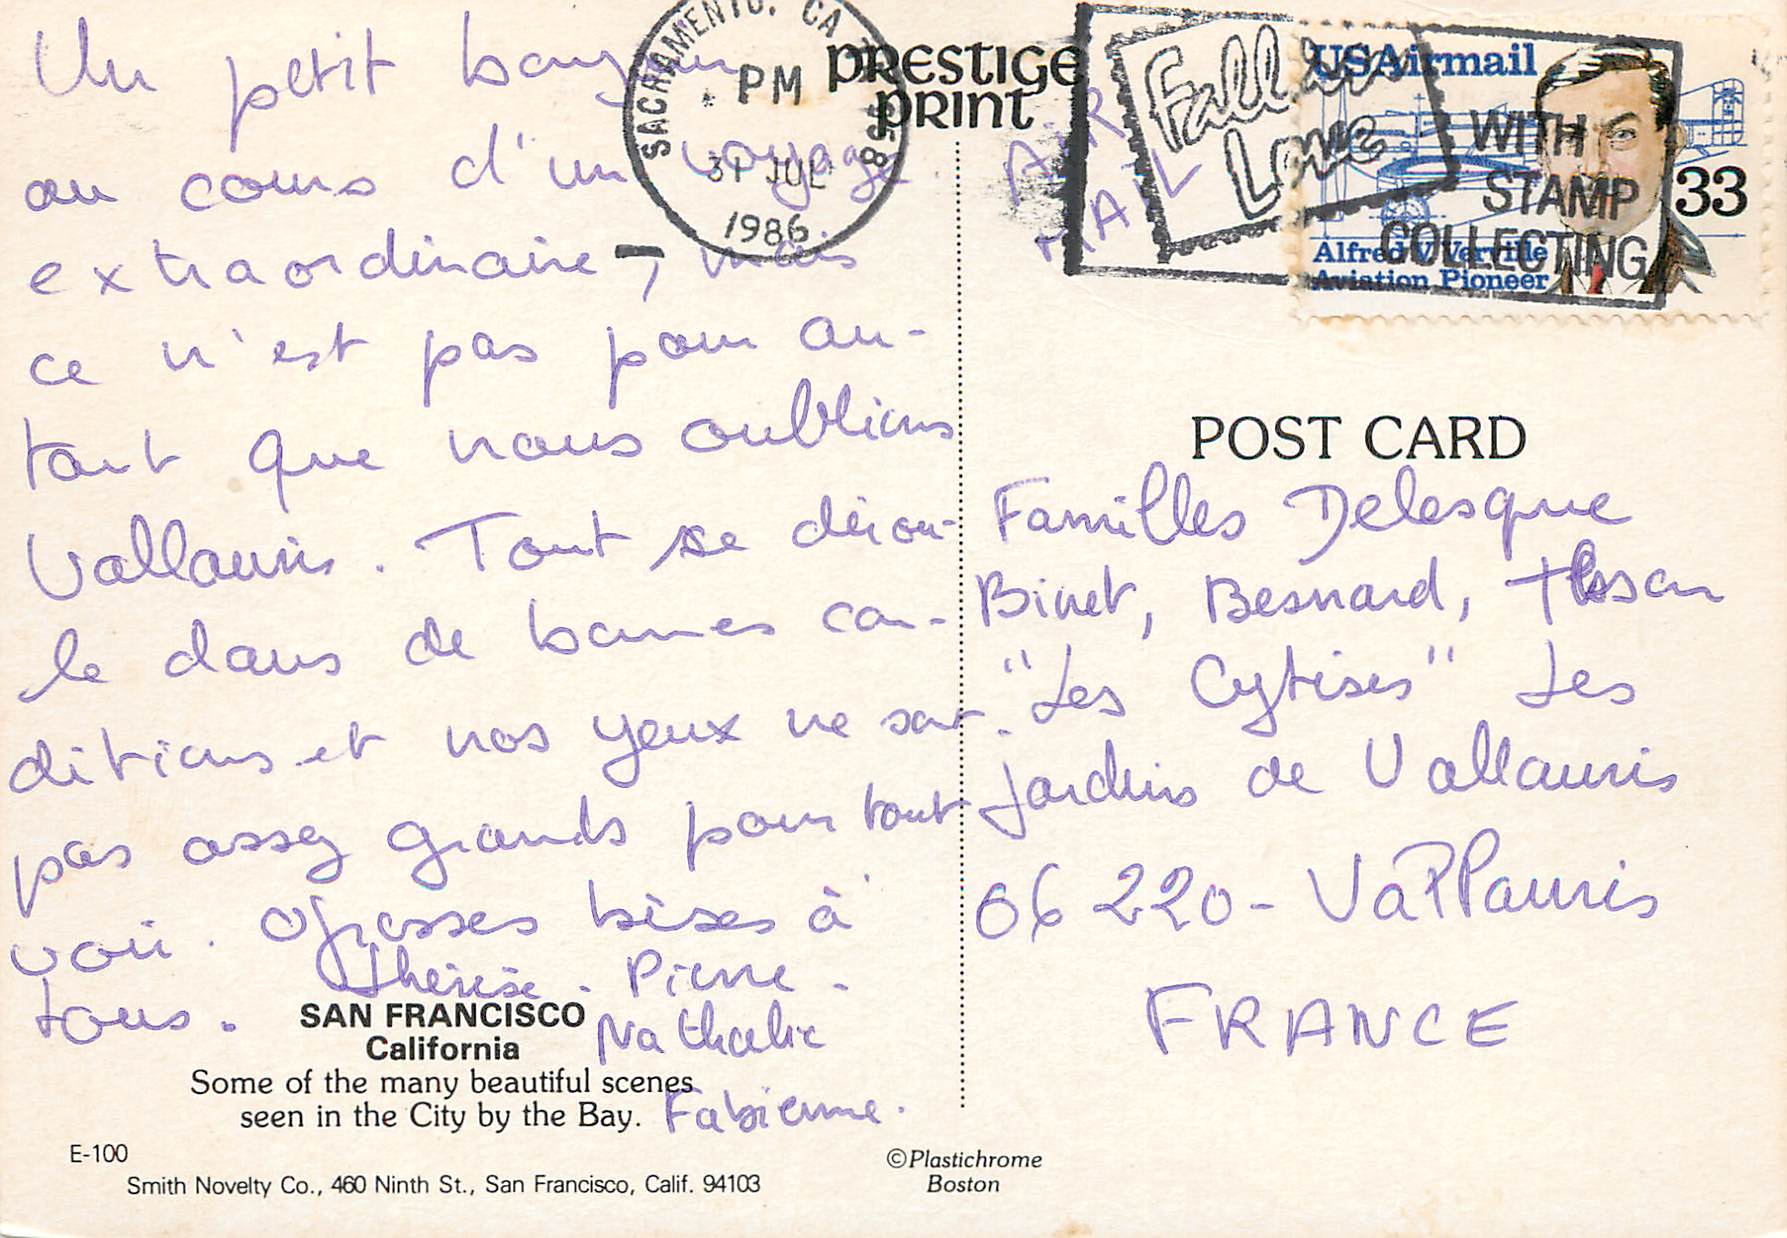 Un petit bonjour
au cours d'un voyage
extraordinaire, mais
ce n'est pas pour au-
tant que nous oublions
Vallauris. Tout se dérou-
le dans de bonnes con-
ditions et nos yeux ne sont
pas assez grands pour tout
voir. Grosses bises à
tous.
Thérèse. Pierre.
Nathalie
Fabienne.
SAN FRANCISCO
California
Some of the many beautiful scenes
seen in the City by the Bay.
E-100
Smith Novelty Co., 460 Ninth St., San Francisco, Calif. 94103
©Plastichrome
Boston
PRESTIGE
PRINT
SACRAMENTO, CA
PM
31 JUL
1986
AIR
MAIL
Fall in
Love
WITH
STAMP
COLLECTING
USAirmail
33
Alfred V. Verville
Aviation Pioneer
POST CARD
Familles Delesque
Binet, Besnard,
"Les Cytises" Les
Jardins de Vallauris
06 220 - Vallauris
FRANCE